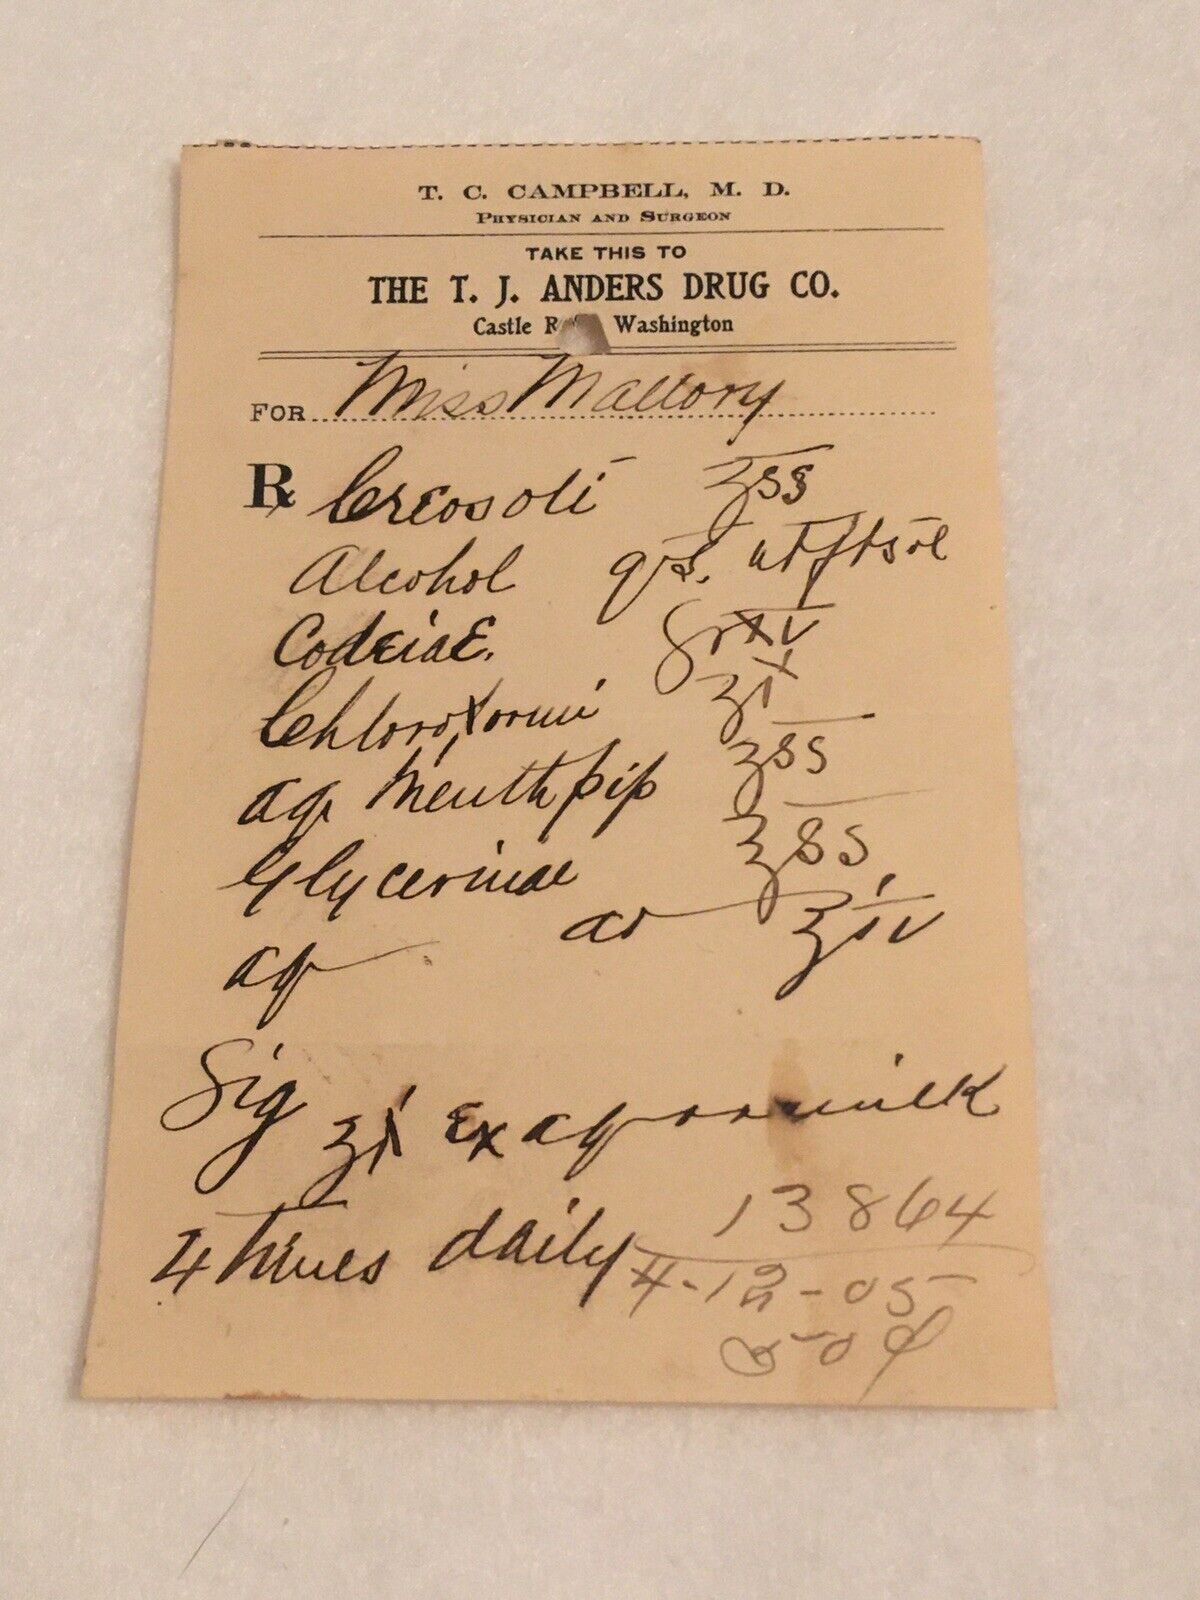 T. C. CAMPBELL, M. D.
PHYSICIAN AND SURGEON
TAKE THIS TO
THE T. J. ANDERS DRUG CO.
Castle R Washington
FOR Miss Mallory
℞ Creosoti ʒss
Alcohol qs. ut ft sol
Codeiae. gr xv
Chloroformi ʒi
aq Menth pip ʒss
Glycerinae ʒss
aq ad ʒiv
Sig ʒi Ex aq or milk
4 times daily
13864
4-12-05